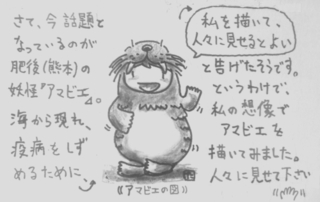 さて、今話題と
なっているのが
肥後(熊本)の
妖怪『アマビエ』。
海から現れ、
疫病をしず
めるために、
私を描いて、
人々に見せるとよい
と告げたそうです。
というわけで、
私の想像で
アマビエを
描いてみました。
人々に見せて下さい
《アマビエの図》